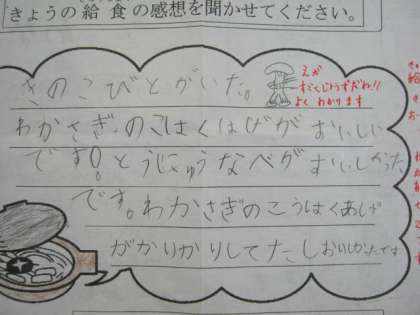 きょうの給食の感想を聞かせてください。
きのこびとがいた。
えが
すごくじょうずだね!!
よくわかります
わかさぎ、のこはくはげが おいしい
です!とうにゅうなべが おいしかった
です。わかさぎのこうはくあげ
がかりかりしてたしおいしかたです